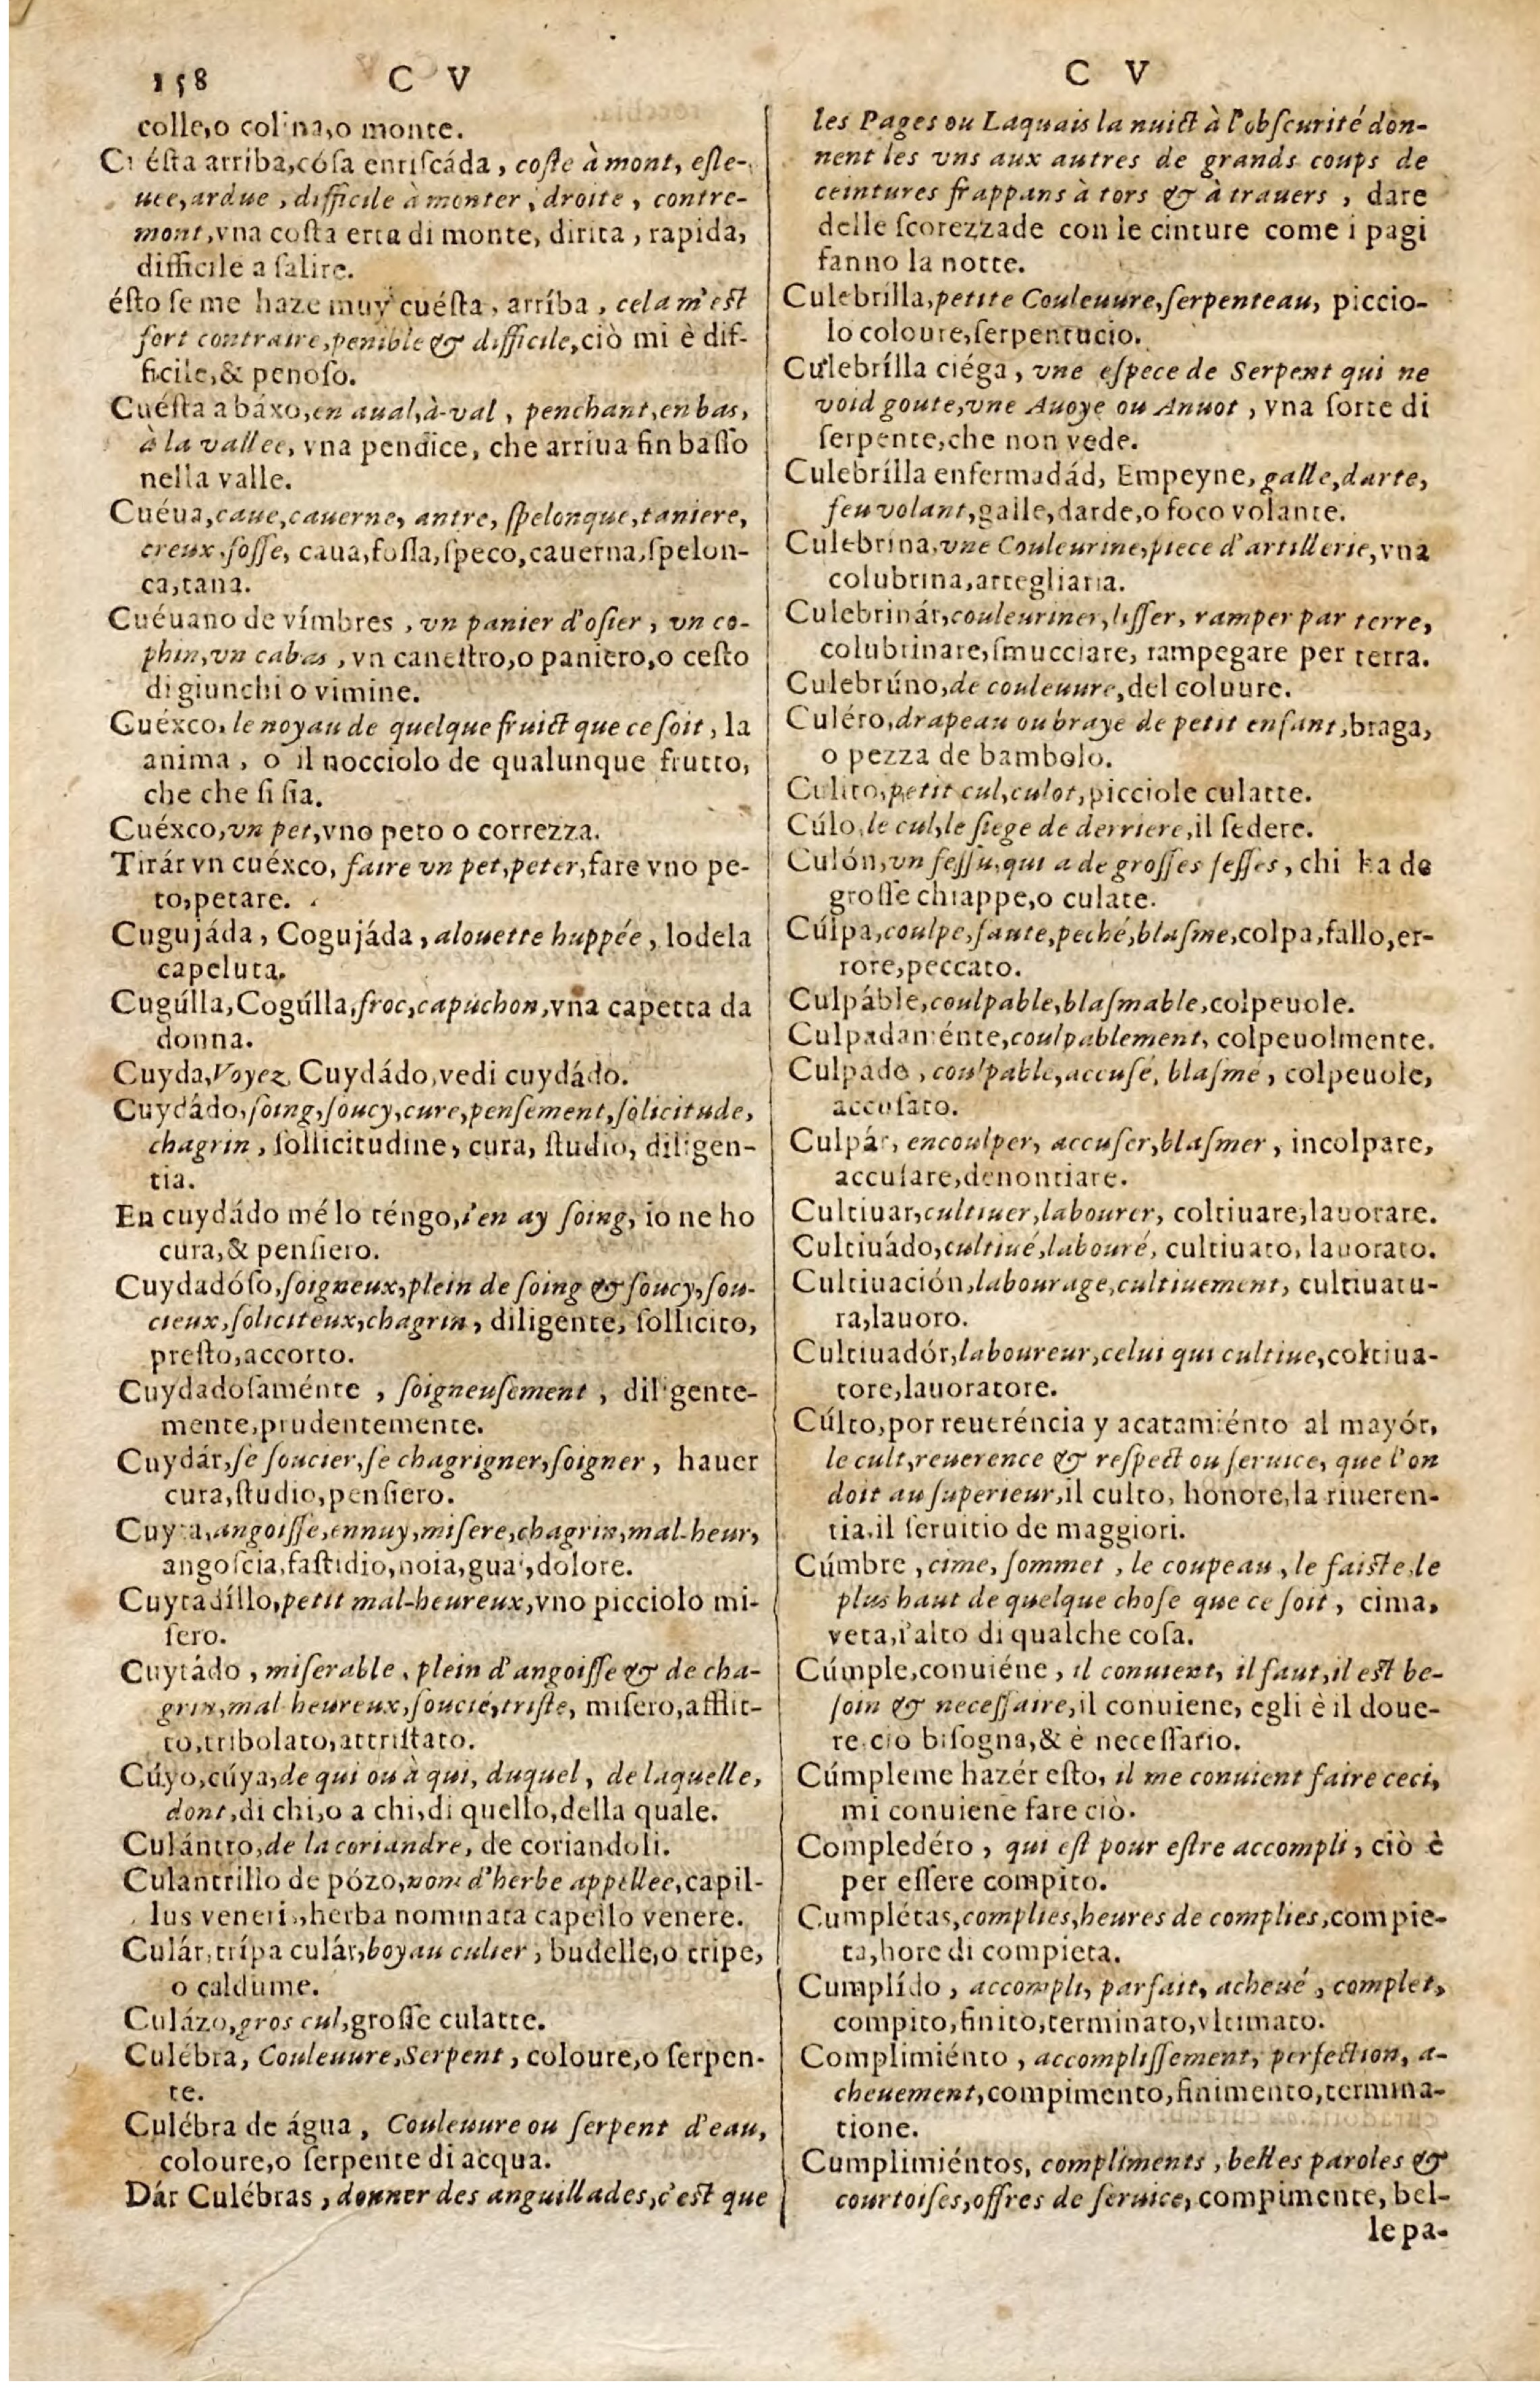 158 C V
colle,o colina,o monte.
Cuésta arriba,cósa enriſcáda, coſte à mont, eſle-
uee,ardue, difficile à monter, droite, contre-
mont,vna coſta erta di monte, dirita, rapida,
difficile a ſalire.
éſto ſe me haze muy cuéſta, arríba, cela m'eſt
fort contraire,penible & difficile,ciò mi è dif-
ficile,& penoſo.
Cuéſta abáxo,en aual,à-val, penchant,en bas,
à la vallee, vna pendice, che arriua fin baſſo
nella valle.
Cuéua,caue,cauerne, antre, ſpelonque,taniere,
creux,foſſe, caua,foſſa,ſpeco,cauerna,ſpelon-
ca,tana.
Cuéuano de vímbres, vn panier d'oſier, vn co-
phin,vn cabas, vn caneſtro,o paniero,o ceſto
di giunchi o vimine.
Cuéxco, le noyau de quelque fruict que ce ſoit, la
anima, o il nocciolo de qualunque frutto,
che che ſi ſia.
Cuéxco,vn pet,vno peto o correzza.
Tirár vn cuéxco, faire vn pet,peter,fare vno pe-
to,petare.
Cugujáda, Cogujáda, alouette huppée, lodela
capeluta.
Cugúlla,Cogúlla,froc,capuchon,vna capetta da
donna.
Cuyda,Voyez, Cuydádo,vedi cuydádo.
Cuydádo,ſoing,ſoucy,cure,penſement,ſolicitude,
chagrin, ſollicitudine, cura, ſtudio, diligen-
tia.
En cuydádo mé lo téngo,i'en ay ſoing, io ne ho
cura,& penſiero.
Cuydadóſo,ſoigneux,plein de ſoing & ſoucy,ſou-
cieux,ſoliciteux,chagrin, diligente, ſollicito,
preſto,accorto.
Cuydadoſaménte, ſoigneuſement, diligente-
mente,prudentemente.
Cuydár,ſe ſoucier,ſe chagrigner,ſoigner, hauer
cura,ſtudio,penſiero.
Cuyta,angoiſſe,ennuy,miſere,chagrin,mal-heur,
angoſcia,faſtidio,noia,guai,dolore.
Cuytadíllo,petit mal-heureux,vno picciolo mi-
ſero.
Cuytádo, miſerable, plein d'angoiſſe & de cha-
grin,mal-heureux,ſoucié,triſte, miſero,afflit-
to,tribolato,attriſtato.
Cúyo,cúya,de qui ou à qui, duquel, de laquelle,
dont,di chi,o a chi,di quello,della quale.
Culántro,de la coriandre, de coriandoli.
Culantrillo de pózo,nom d'herbe appellee,capil-
lus veneris,herba nominata capello venere.
Culár,trípa culár,boyau culier, budelle,o tripe,
o caldume.
Culázo,gros cul,groſſe culatte.
Culébra, Couleuure,Serpent, coloure,o ſerpen-
te.
Culébra de água, Couleuure ou ſerpent d'eau,
coloure,o ſerpente di acqua.
Dár Culébras, donner des anguillades,c'eſt que
C V
les Pages ou Laquais la nuict à l'obſcurité don-
nent les vns aux autres de grands coups de
ceintures frappans à tors & à trauers, dare
delle ſcorezzade con le cinture come i pagi
fanno la notte.
Culebrílla,petite Couleuure,ſerpenteau, piccio-
lo coloure,ſerpentucio.
Culebrílla ciéga, vne eſpece de Serpent qui ne
void goute,vne Auoye ou Anuot, vna ſorte di
ſerpente,che non vede.
Culebrílla enfermadád, Empeyne, galle,darte,
feu volant,galle,darde,o foco volante.
Culebrina,vne Couleurine,piece d'artillerie,vna
colubrina,artegliaria.
Culebrinár,couleuriner,liſſer, ramper par terre,
colubrinare,ſmucciare, rampegare per terra.
Culebrúno,de couleuure,del coluure.
Culéro,drapeau ou braye de petit enfant,braga,
o pezza de bambolo.
Culito,petit cul,culot,picciole culatte.
Cúlo,le cul,le ſiege de derriere,il ſedere.
Culón,vn feſſu,qui a de groſſes feſſes, chi ha de
groſſe chiappe,o culate.
Cúlpa,coulpe,faute,peché,blaſme,colpa,fallo,er-
rore,peccato.
Culpáble,coulpable,blaſmable,colpeuole.
Culpadaménte,coulpablement, colpeuolmente.
Culpado, coulpable,accuſé, blaſmé, colpeuole,
accuſato.
Culpár, encoulper, accuſer,blaſmer, incolpare,
accuſare,denontiare.
Cultiuar,cultiuer,labourer, coltiuare,lauorare.
Cultiuádo,cultiué,labouré, cultiuato, lauorato.
Cultiuación,labourage,cultiuement, cultiuatu-
ra,lauoro.
Cultiuadór,laboureur,celui qui cultiue,coltiua-
tore,lauoratore.
Cúlto,por reueréncia y acatamiénto al mayór,
le cult,reuerence & reſpect ou ſeruice, que l'on
doit au ſuperieur,il culto, honore,la riueren-
tia,il ſeruitio de maggiori.
Cúmbre, cime, ſommet, le coupeau, le faiſte,le
plus haut de quelque choſe que ce ſoit, cima,
veta,l'alto di qualche coſa.
Cúmple,conuiéne, il conuient, il faut,il eſt be-
ſoin & neceſſaire,il conuiene, egli è il doue-
re cio biſogna,& è neceſſario.
Cúmpleme hazér eſto, il me conuient faire ceci,
mi conuiene fare ciò.
Compledéro, qui eſt pour eſtre accompli, ciò è
per eſſere compito.
Cumplétas,complies,heures de complies,compie-
ta,hore di compieta.
Cumplído, accompli, parfait, acheué, complet,
compito,finito,terminato,vltimato.
Complimiénto, accompliſſement, perfection, a-
cheuement,compimento,finimento,termina-
tione.
Cumplimiéntos, compliments, belles paroles &
courtoiſes,offres de ſeruice, compimente, bel-
le pa-